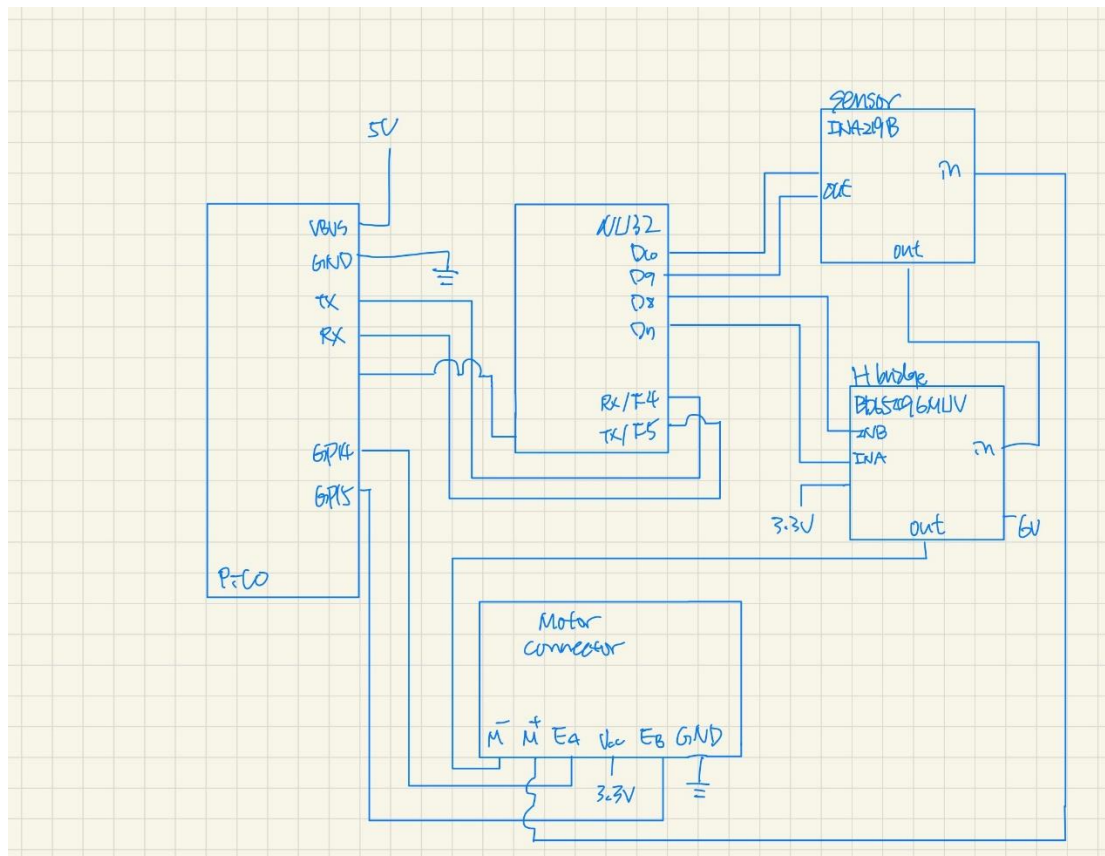 5V
VBUS
GND
TX
RX
GP14
GP15
Pico
NU32
D9
D8
RX/F4
TX/F5
Sensor
INA219B
in
out
out
H bridge
INB
INA
in
3.3V
out
6V
Motor
connector
M- M+ EA Vcc EB GND
3.3V